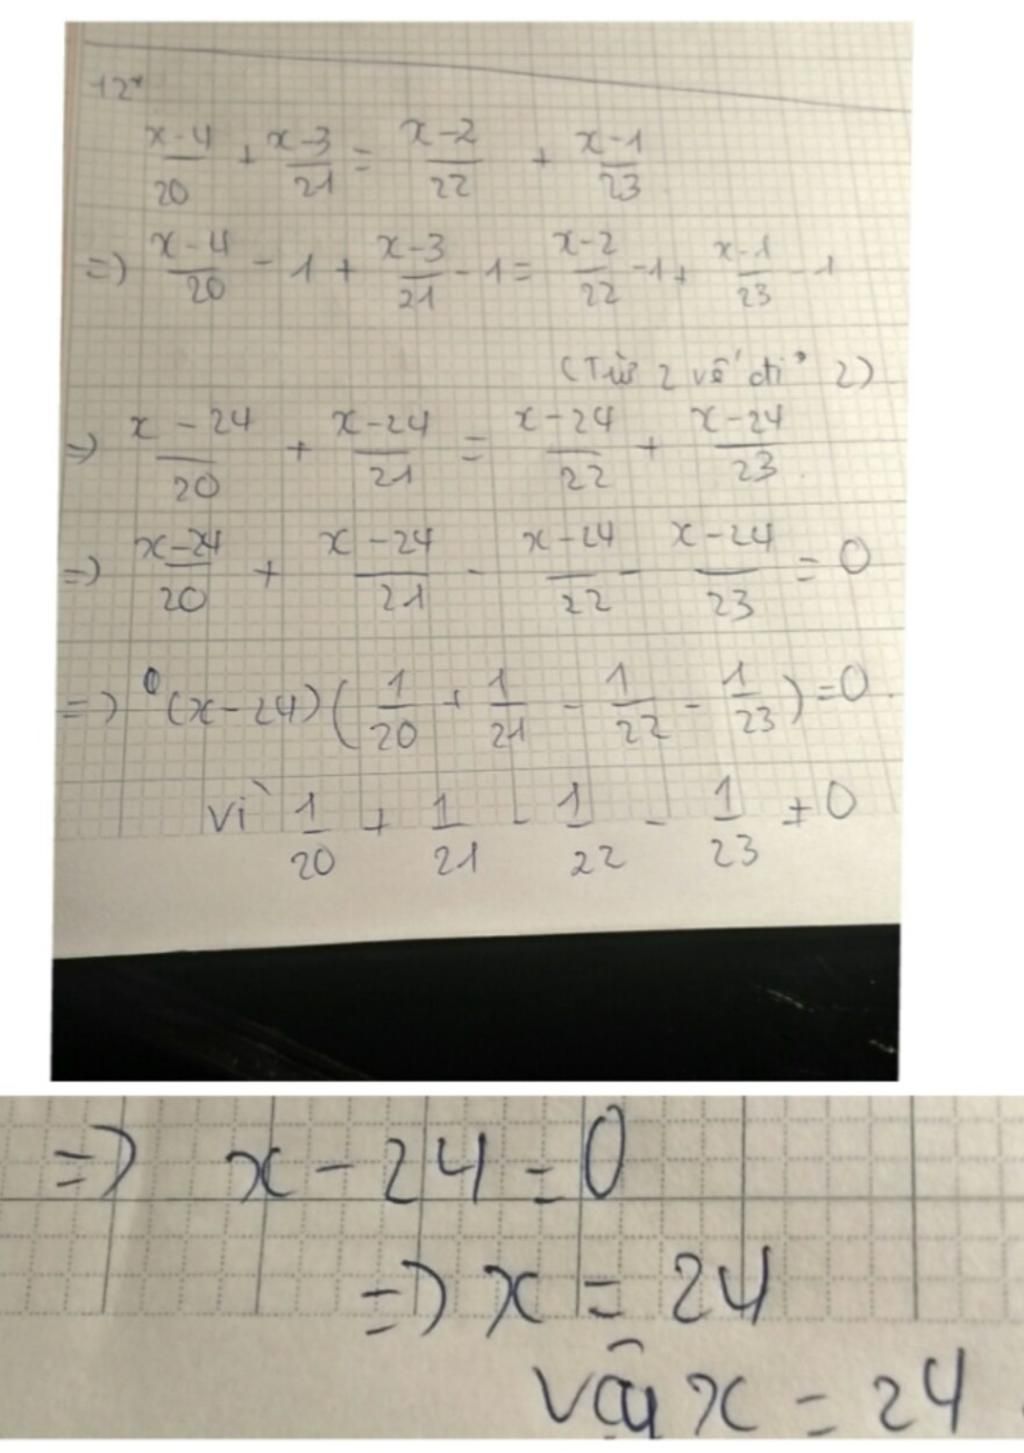 12*
x-4/20 + x-3/21 = x-2/22 + x-1/23
=) x-4/20 - 1 + x-3/21 - 1 = x-2/22 - 1 + x-1/23 - 1
(Trừ 2 vế đi 2)
=) x-24/20 + x-24/21 = x-24/22 + x-24/23
=) x-24/20 + x-24/21 - x-24/22 - x-24/23 = 0
=) (x-24)(1/20 + 1/21 - 1/22 - 1/23) = 0
vì 1/20 + 1/21 - 1/22 - 1/23 ≠ 0
=) x - 24 = 0
=) x = 24
vậy x = 24